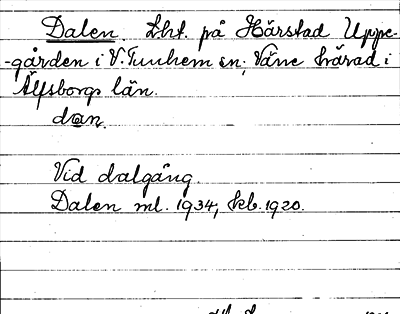 Dalen. Lht. på Hårstad Uppe-
-gården i V. Tunhem sn; Väne härad i
Älfsborgs län.
dan.
Vid dalgång.
Dalen ml. 1934; kb. 1920.